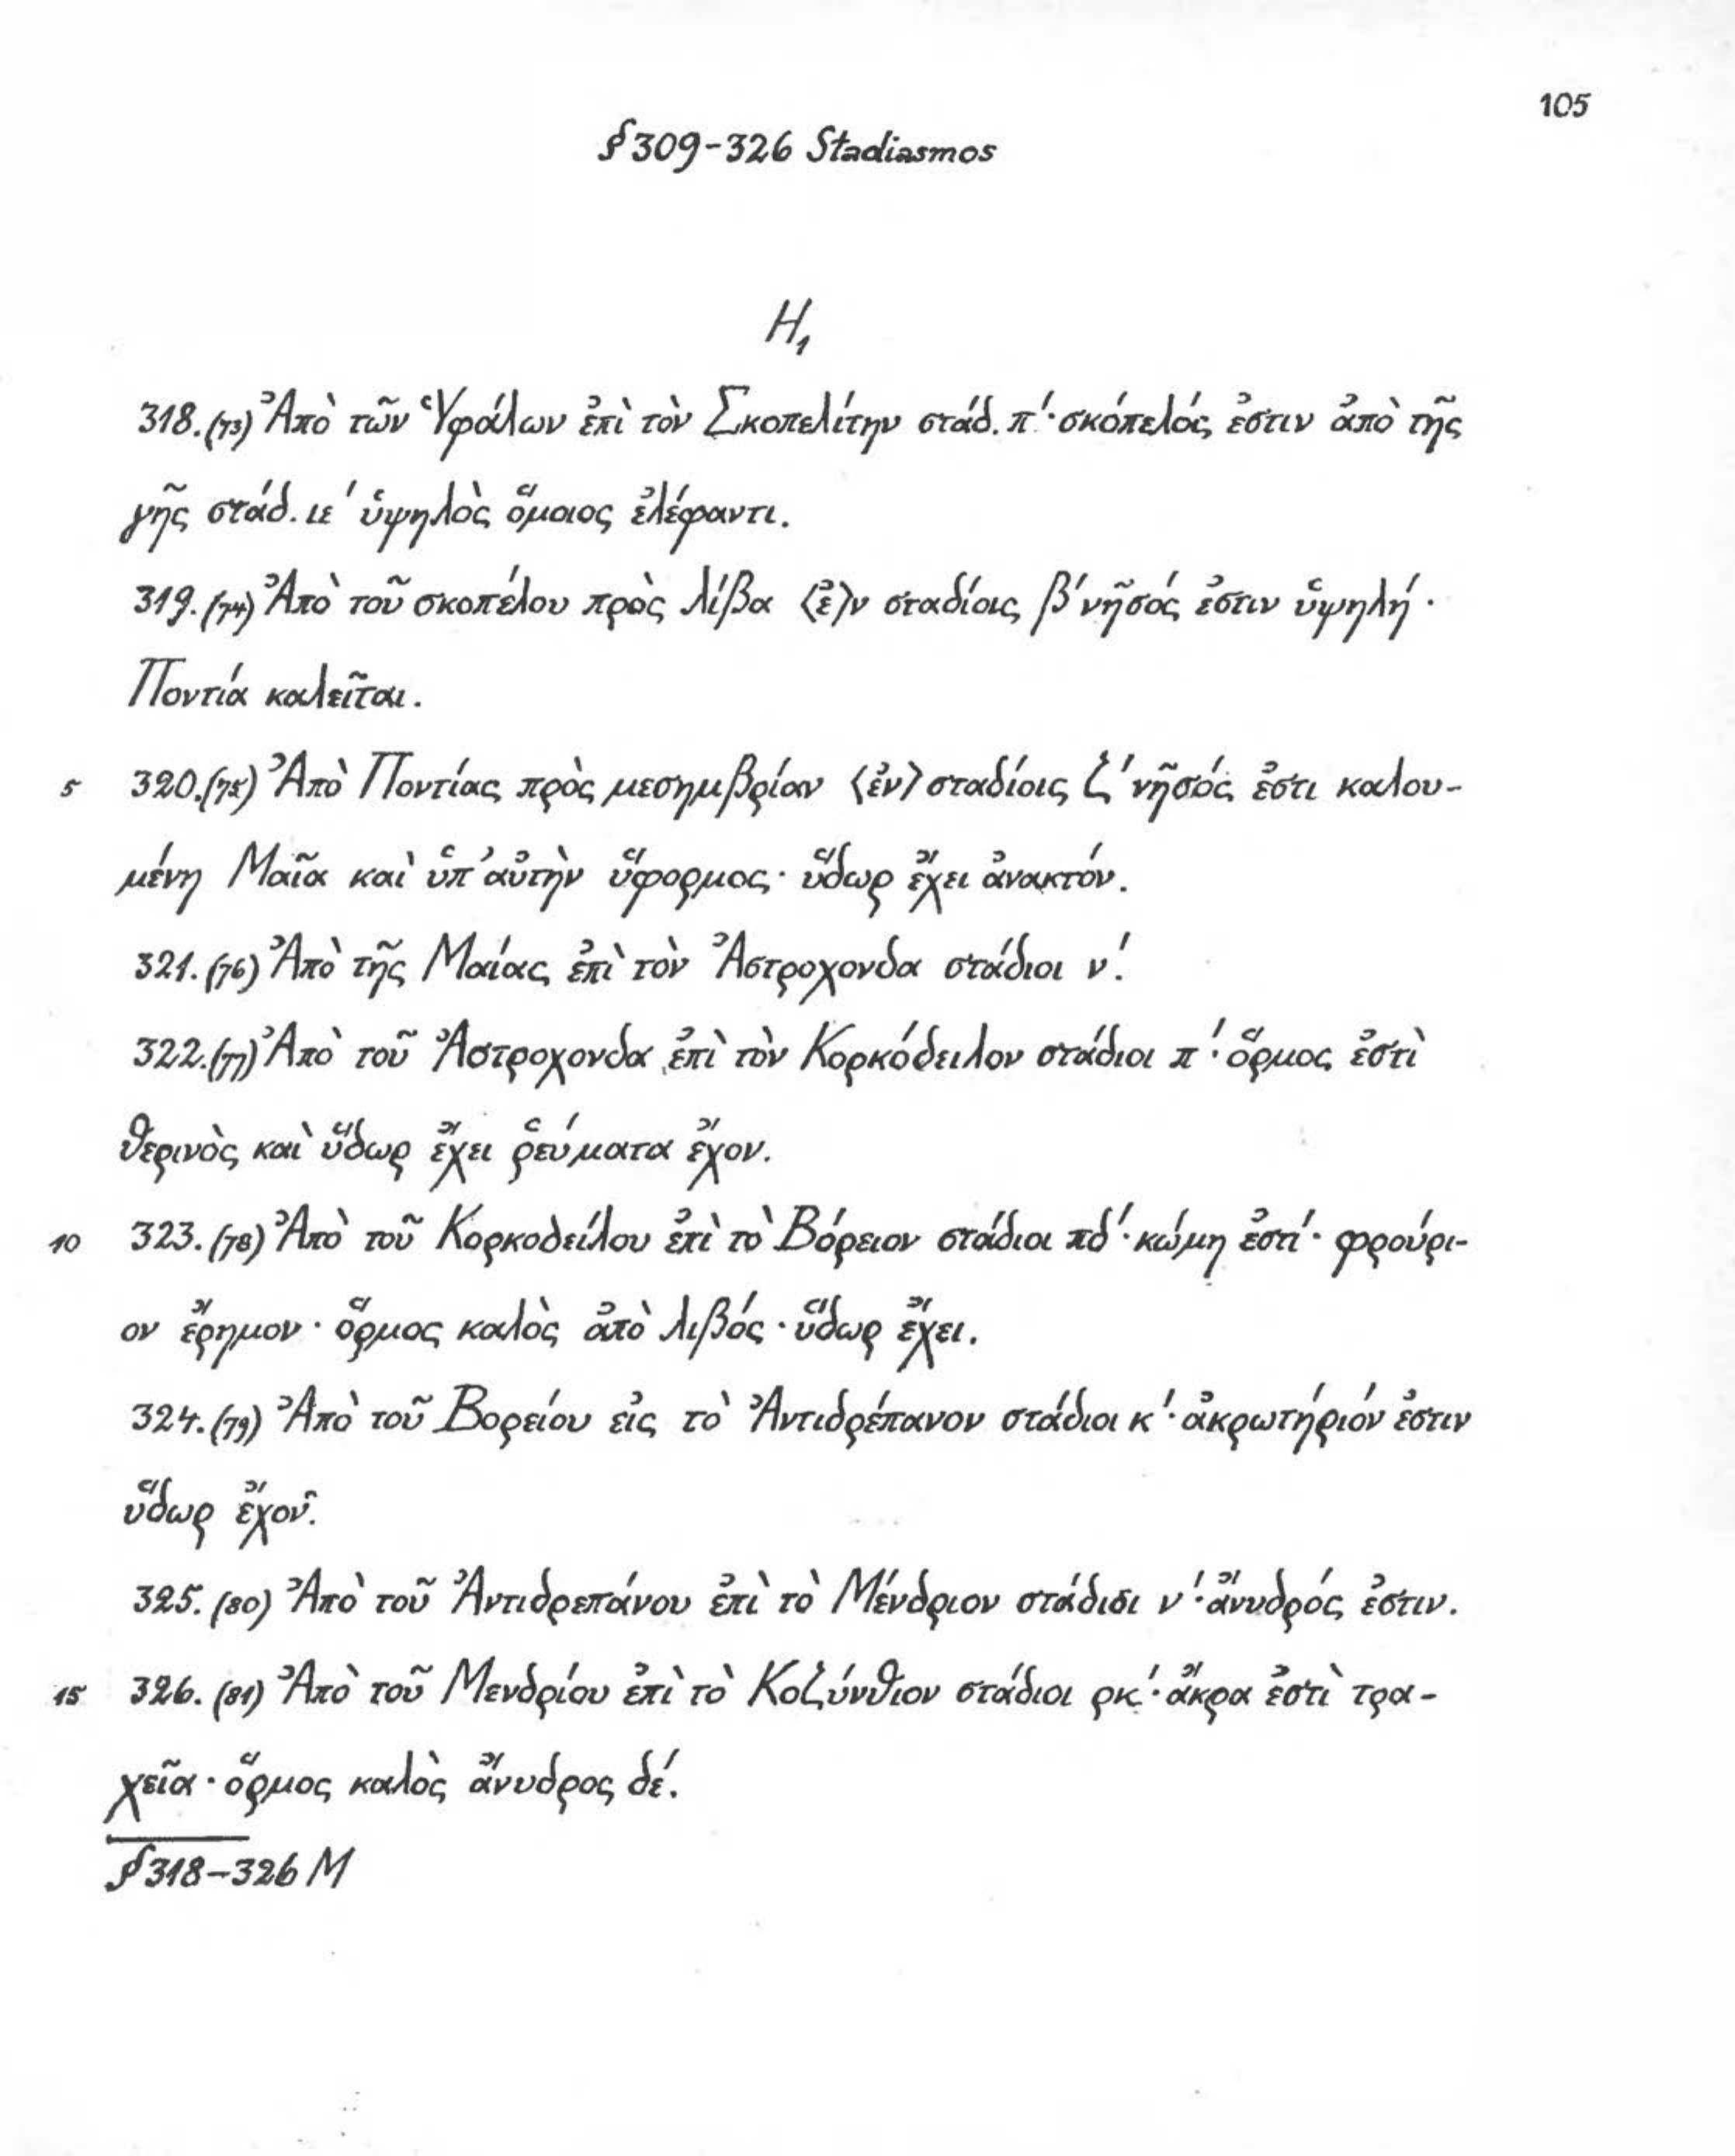 105
§ 309-326 Stadiasmos
H₁
318.(73) Ἀπὸ τῶν Ὑφάλων ἐπὶ τὸν Σκοπελίτην στάδ. π'· σκόπελός ἐστιν ἀπὸ τῆς
γῆς στάδ. ιε' ὑψηλὸς ὅμοιος ἐλέφαντι.
319.(74) Ἀπὸ τοῦ σκοπέλου πρὸς λίβα ⟨ἐ⟩ν σταδίοις β' νῆσός ἐστιν ὑψηλή·
Ποντία καλεῖται.
5 320.(75) Ἀπὸ Ποντίας πρὸς μεσημβρίαν ⟨ἐν⟩ σταδίοις ζ' νῆσός ἐστι καλου-
μένη Μαῖα καὶ ὑπ' αὐτὴν ὕφορμος· ὕδωρ ἔχει ἀνακτόν.
321.(76) Ἀπὸ τῆς Μαίας ἐπὶ τὸν Ἀστροχονδα στάδιοι ν'.
322.(77) Ἀπὸ τοῦ Ἀστροχονδα ἐπὶ τὸν Κορκόδειλον στάδιοι π'· ὅρμος ἐστὶ
θερινὸς καὶ ὕδωρ ἔχει ῥεύματα ἔχον.
10 323.(78) Ἀπὸ τοῦ Κορκοδείλου ἐπὶ τὸ Βόρειον στάδιοι πδ'· κώμη ἐστί· φρούρι-
ον ἔρημον· ὅρμος καλὸς ἀπὸ λιβός· ὕδωρ ἔχει.
324.(79) Ἀπὸ τοῦ Βορείου εἰς τὸ Ἀντιδρέπανον στάδιοι κ'· ἀκρωτήριόν ἐστιν
ὕδωρ ἔχον.
325.(80) Ἀπὸ τοῦ Ἀντιδρεπάνου ἐπὶ τὸ Μένδριον στάδιοι ν'· ἄνυδρός ἐστιν.
15 326.(81) Ἀπὸ τοῦ Μενδρίου ἐπὶ τὸ Κοζύνθιον στάδιοι ρκ'· ἄκρα ἐστὶ τρα-
χεῖα· ὅρμος καλὸς ἄνυδρος δέ.
§ 318-326 M